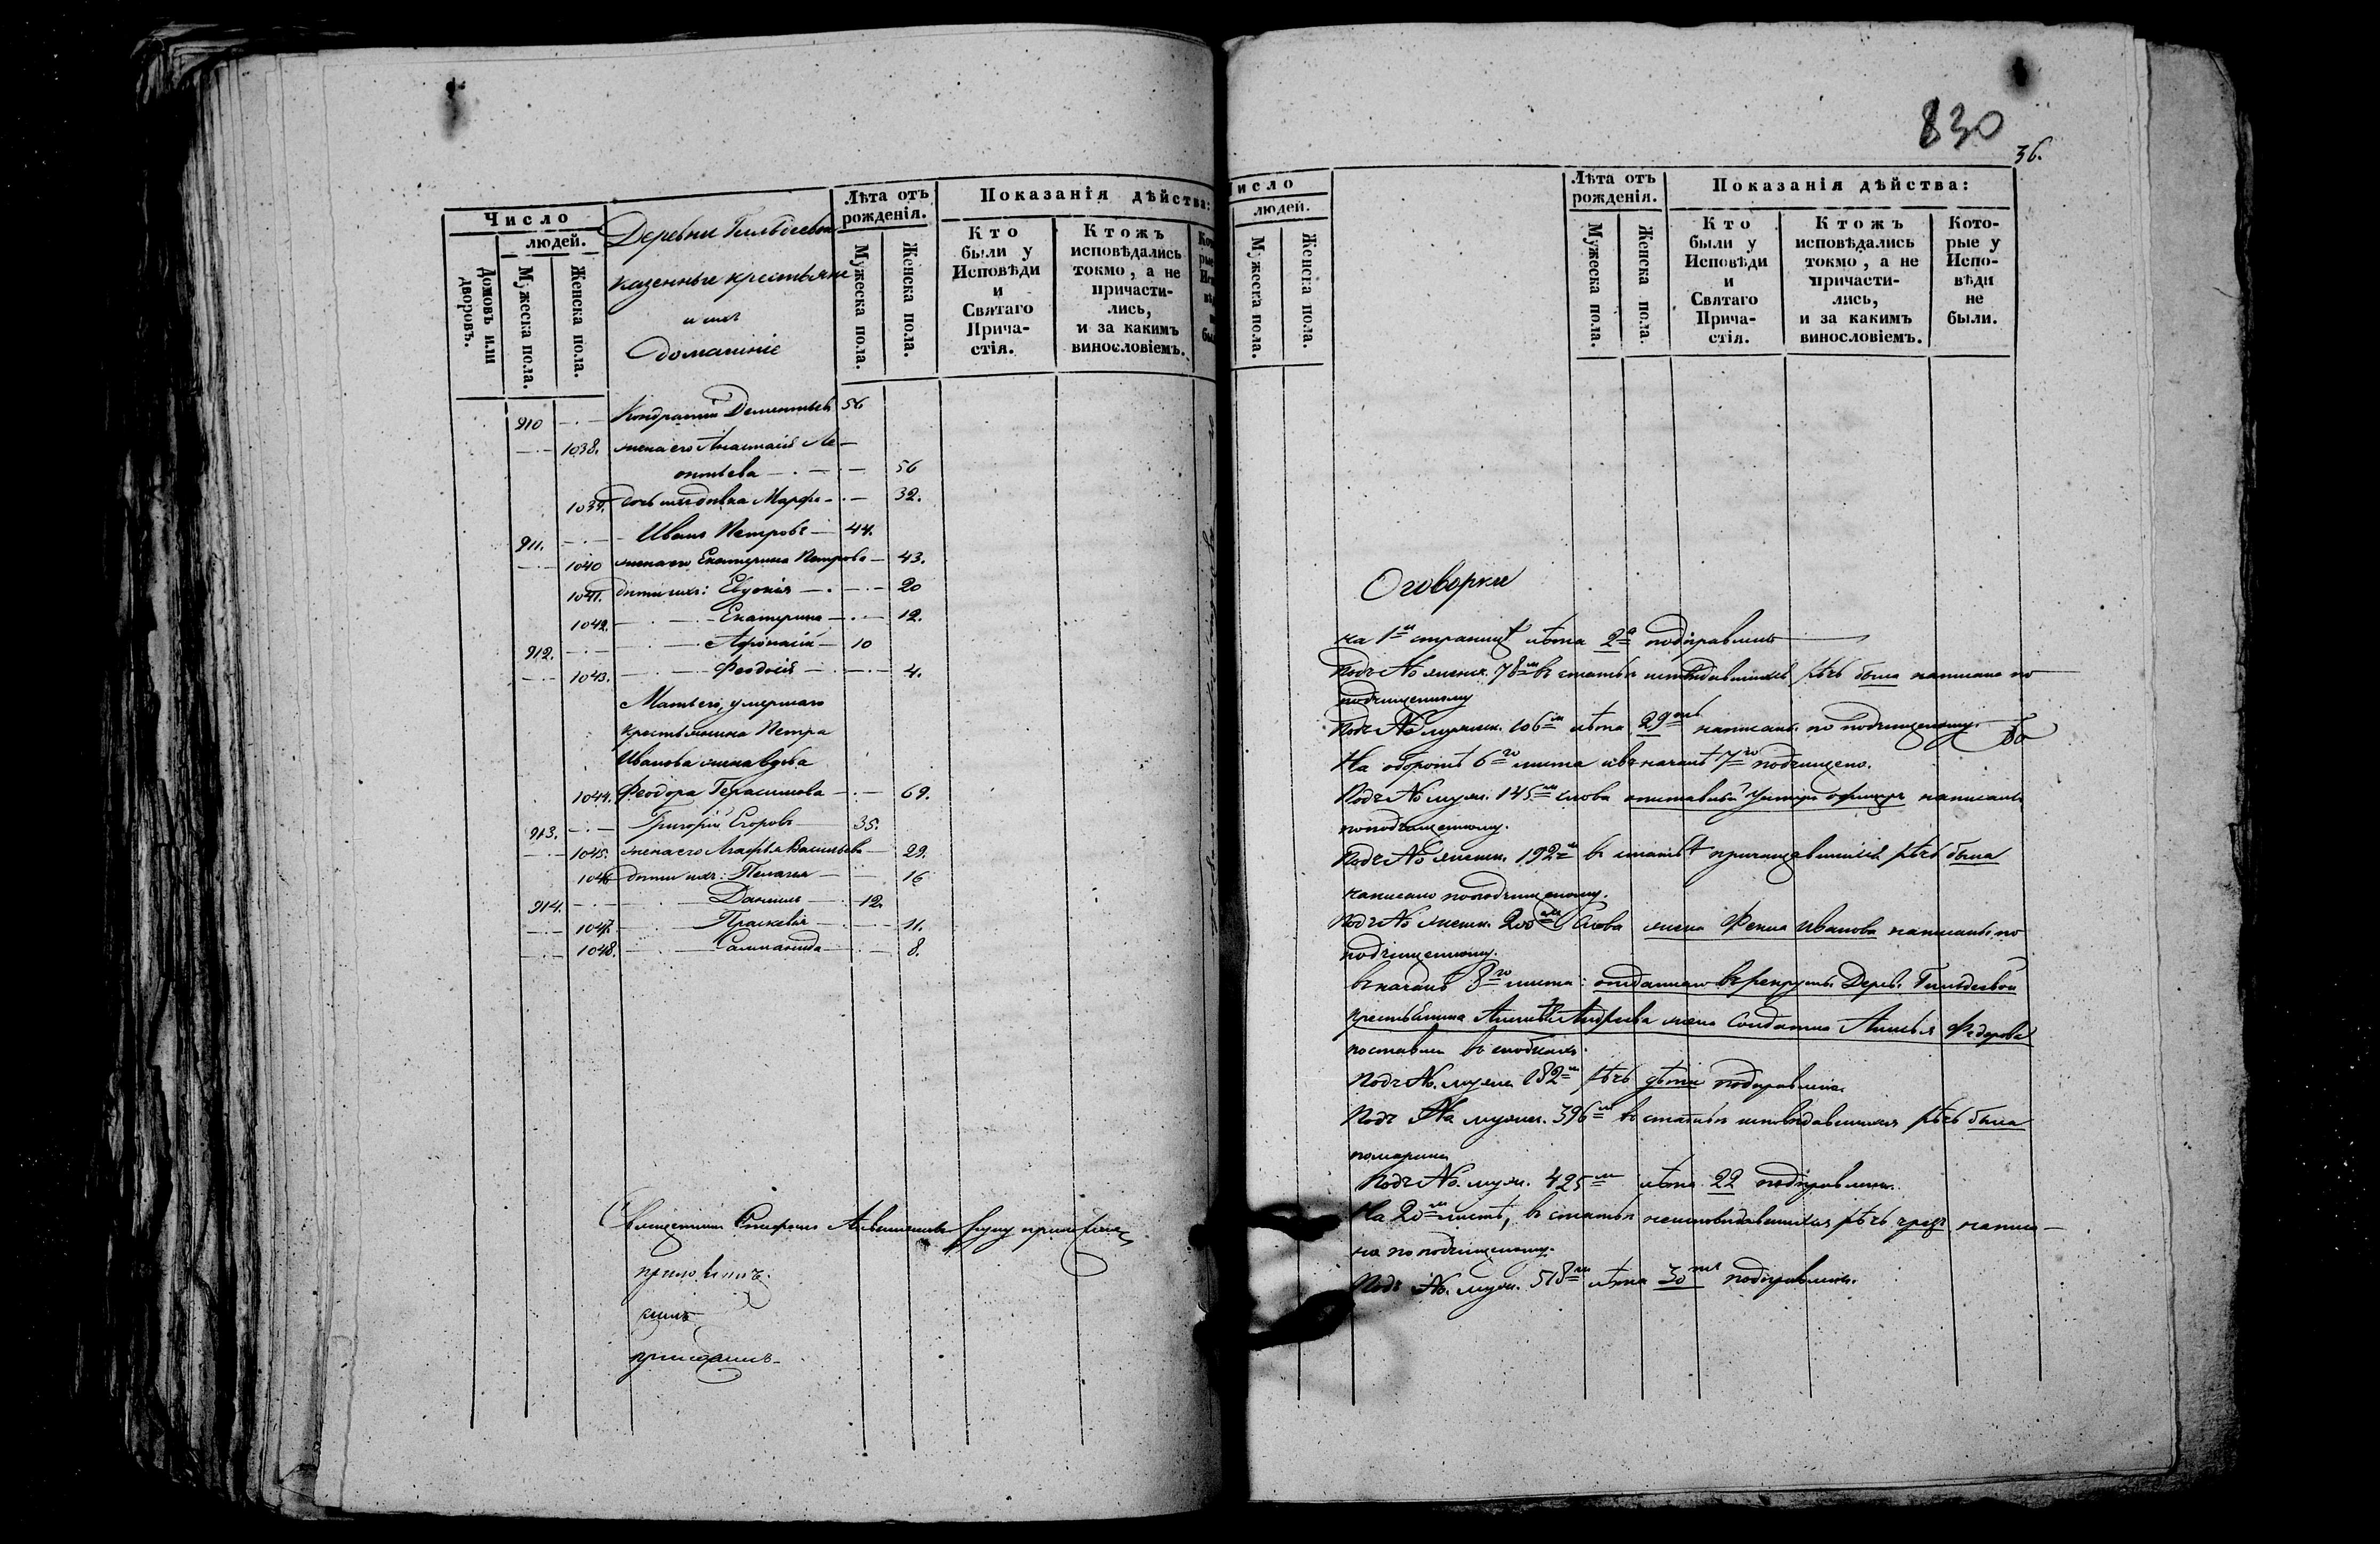 Число
людей.
Домовъ или дворовъ.
Мужеска пола.
Женска пола.
Деревни Бильдеевой
казенные крестьяне
и ихъ
домашніе
Лѣта отъ рожденія.
Мужеска пола.
Женска пола.
Показанія дѣйства:
Кто были у Исповѣди и Святаго Прича-
стія.
Ктожъ исповѣдались токмо, а не причасти-
лись, и за какимъ винословіемъ.
910 Кондратій Дементьевъ 56
1038. жена его Анастасія Ле-
онтьева 56
1039. дочь ихъ девка Марфа 32.
911. Иванъ Петровъ 44.
1040 жена его Екатерина Петрова 43.
1041. дети ихъ: Евдокія 20
1042. Екатерина 12.
912. Афонасій 10
1043. Феодосія 4.
Мать его, умершаго
крестьянина Петра
Иванова жена вдова
1044. Феодора Герасимова 69.
913. Григорій Егоровъ 35.
1045. жена его Агафья Васильева 29.
1046 дети ихъ: Пелагея 16
914. Даниилъ 12.
1047. Праскевія 11.
1048. Саломанида 8.
Священникъ Стефанъ руку приложилъ
830
36.
Число
людей.
Мужеска пола.
Женска пола.
Лѣта отъ рожденія.
Мужеска пола.
Женска пола.
Показанія дѣйства:
Кто были у Исповѣди и Святаго Прича-
стія.
Ктожъ исповѣдались токмо, а не причасти-
лись, и за какимъ винословіемъ.
Кото-
рые у Испо-
вѣди не были.
Оговорки
на 1й страницѣ лѣта 2а подправлены
Подъ № женск. 78м въ статьѣ исповѣдавшихся рѣчь была написана по
подчищенному
Подъ № мужеск. 106м лѣта 29 написаны по подчищеному.
На оборотѣ 6го листа и въ началѣ 7го подчищено.
Подъ № муж. 145м слова отставной унтеръ офицеръ написаны
по подчищенному.
Подъ № женск. 192м въ статьѣ причащавшихся рѣчь была
написано по подчищеному.
Подъ № женск. 200м слова жена Фекла Иванова написаны по
подчищенному.
Въ началѣ 8го листа: отданнаго въ рекруты Дерев. Бильдеевой
крестьянина Андреева жена солдатка Федорова
поставлены въ скобкахъ.
Подъ №. мужеск 182м рѣчь дѣти подправлена.
Подъ № мужеск. 396м въ статьѣ исповѣдавшихся рѣчь была
помарана
Подъ №. муж. 425м лѣта 22 подправлены.
На 20м листѣ, въ статьѣ неисповѣдавшихся рѣчь написа-
на по подчищеному.
Подъ №. муж. 518м лѣта 30 подправлены.